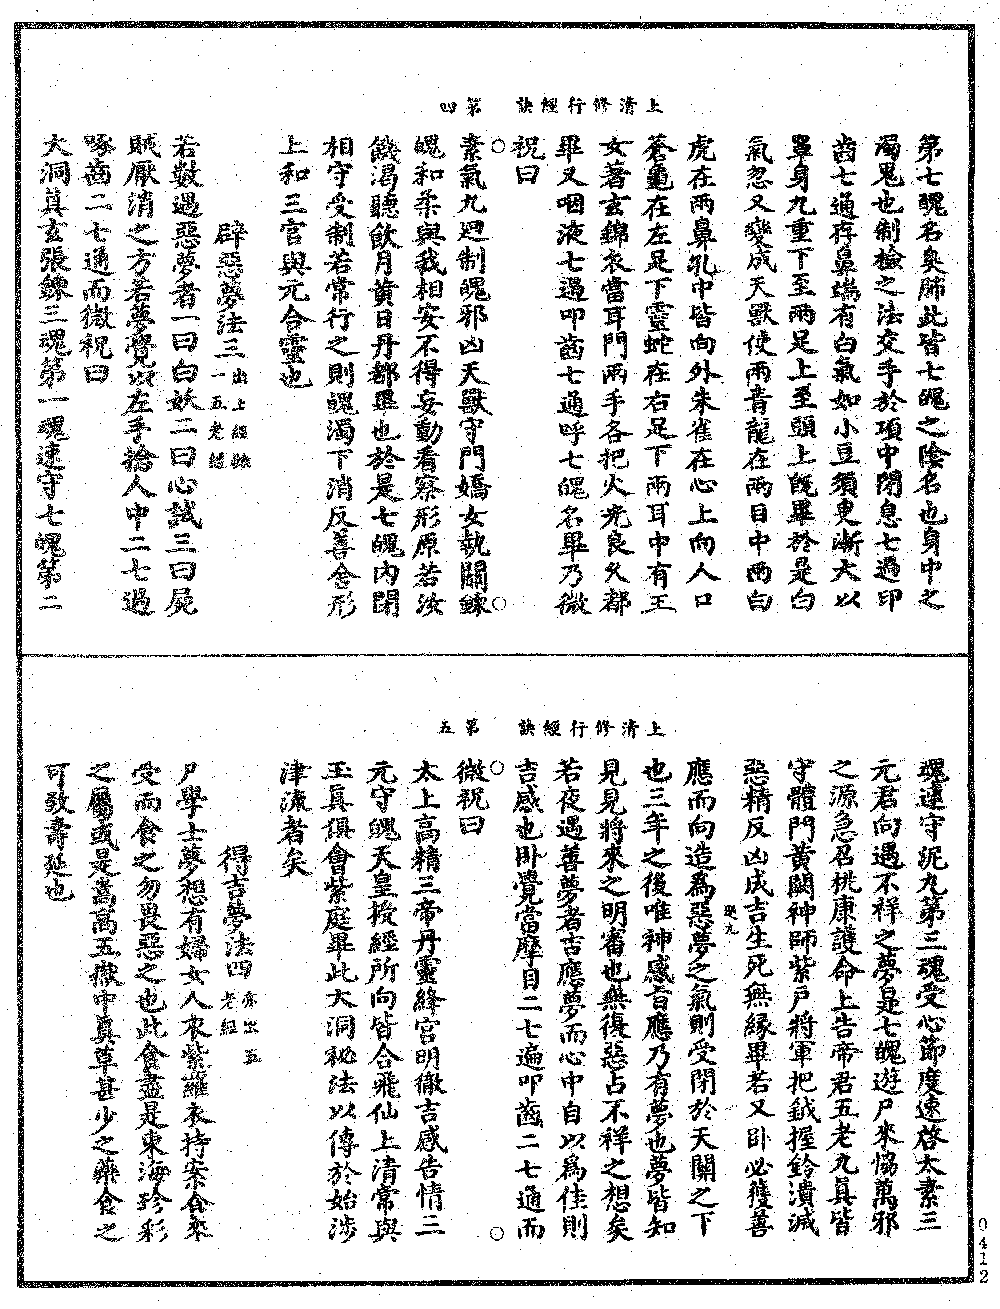 上清修行經訣　第四
第七魄名臭肺此皆七魄之陰名也身中之
濁鬼也制檢之法交手於項中閉息七過印
齒七通存鼻端有白氣如小豆須臾漸大以
冪身九重下至兩足上至頭上旣畢於是白
氣忽又變成天獸使兩青龍在兩目中兩白
虎在兩鼻孔中皆向外朱雀在心上向人口
蒼龜在左足下靈蛇在右足下兩耳中有玉
女著玄錦衣當耳門兩手各把火光良久都
畢又咽液七過叩齒七通呼七魄名畢乃微
祝曰
素氣九迴制魄邪凶天獸守門嬌女執關鍊
魄和柔與我相安不得妄動看察形原若汝
饑渴聽飲月黃日丹都畢也於是七魄內閉
相守受制若常行之則魄濁下消反善舍形
上和三官與元合靈也
辟惡夢法三出上經錄一五老經
若數遇惡夢者一曰白妖二曰心試三曰屍
賊厭消之方若夢覺以左手捻人中二七過
啄齒二七通而微祝曰
大洞真玄張鍊三魂第一魂速守七魄第二
上清修行經訣　第五
魂速守泥丸第三魂受心節度速啓太素三
元君向遇不祥之夢是七魄遊尸來恊萬邪
之源急召桃康護命上告帝君五老九真皆
守體門黃闕神師紫戶將軍把鉞握鈴潰滅
惡精反凶成吉生死無緣畢若又卧必獲善
應而向造爲惡夢之氣則受閉於天關之下
也三年之後唯神感旨應乃有夢也夢皆知
見見將來之明審也無復惡占不祥之想矣
若夜遇善夢者吉應夢而心中自以爲佳則
吉感也卧覺當摩目二七遍叩齒二七通而
微祝曰
太上高精三帝丹靈絳宮明徹吉感告情三
元守魄天皇授經所向皆合飛仙上清常與
玉真俱會紫庭畢此大洞祕法以傳於始涉
津流者矣
得吉夢法四亦出五老經
尸學士夢想有婦女人衣紫羅衣持案食來
受而食之勿畏惡之也此食盡是東海珍彩
之屬或是嵩高五嶽中真草甚少之藥食之
可致壽延也
0412